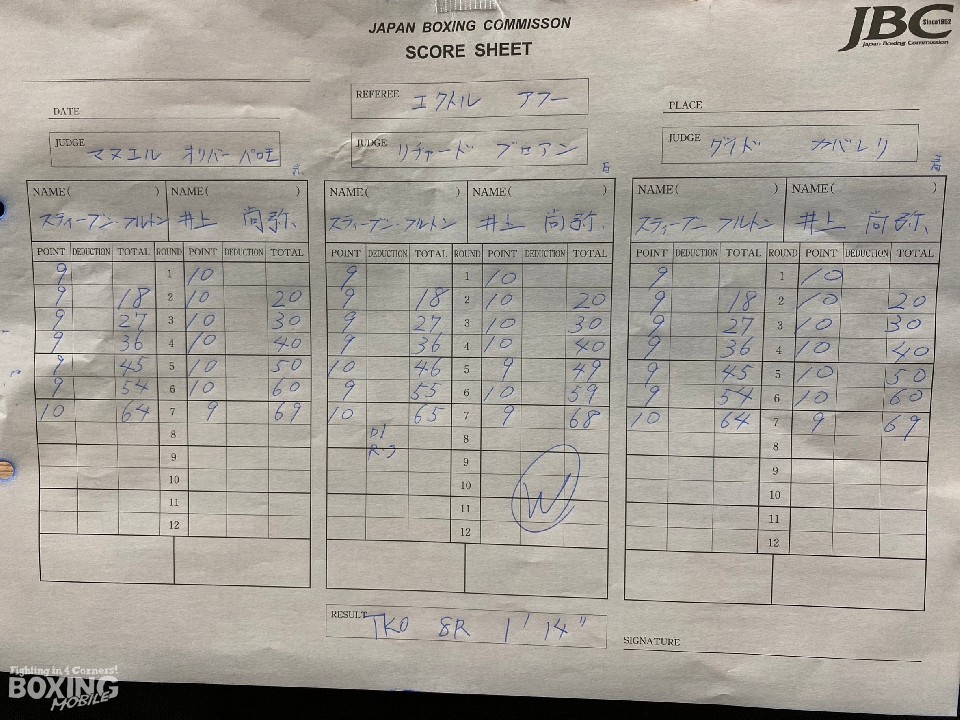 JAPAN BOXING COMMISSON
SCORE SHEET
JBC Since1952
Japan Boxing Commission
DATE
REFEREE エクトル アフー
PLACE
JUDGE マヌエル オリバー パロモ
JUDGE リチャード ブロアン
JUDGE グイド カバレリ
NAME( ) NAME( ) NAME( ) NAME( ) NAME( ) NAME( )
スティーブン・フルトン 井上 尚弥 スティーブン フルトン 井上 尚弥 スティーブン フルトン 井上 尚弥
POINT DEDUCTION TOTAL ROUND POINT DEDUCTION TOTAL POINT DEDUCTION TOTAL ROUND POINT DEDUCTION TOTAL POINT DEDUCTION TOTAL ROUND POINT DEDUCTION TOTAL
9 1 10 9 1 10 9 1 10
9 18 2 10 20 9 18 2 10 20 9 18 2 10 20
9 27 3 10 30 9 27 3 10 30 9 27 3 10 30
9 36 4 10 40 9 36 4 10 40 9 36 4 10 40
9 45 5 10 50 10 46 5 9 49 9 45 5 10 50
9 54 6 10 60 9 55 6 10 59 9 54 6 10 60
10 64 7 9 69 10 65 7 9 68 10 64 7 9 69
8 8 8
9 9 9
10 10 W 10
11 11 11
12 12 12
RESULT TKO 8R 1'14"
SIGNATURE
Fighting in 4 Corners!
BOXING
MOBILE